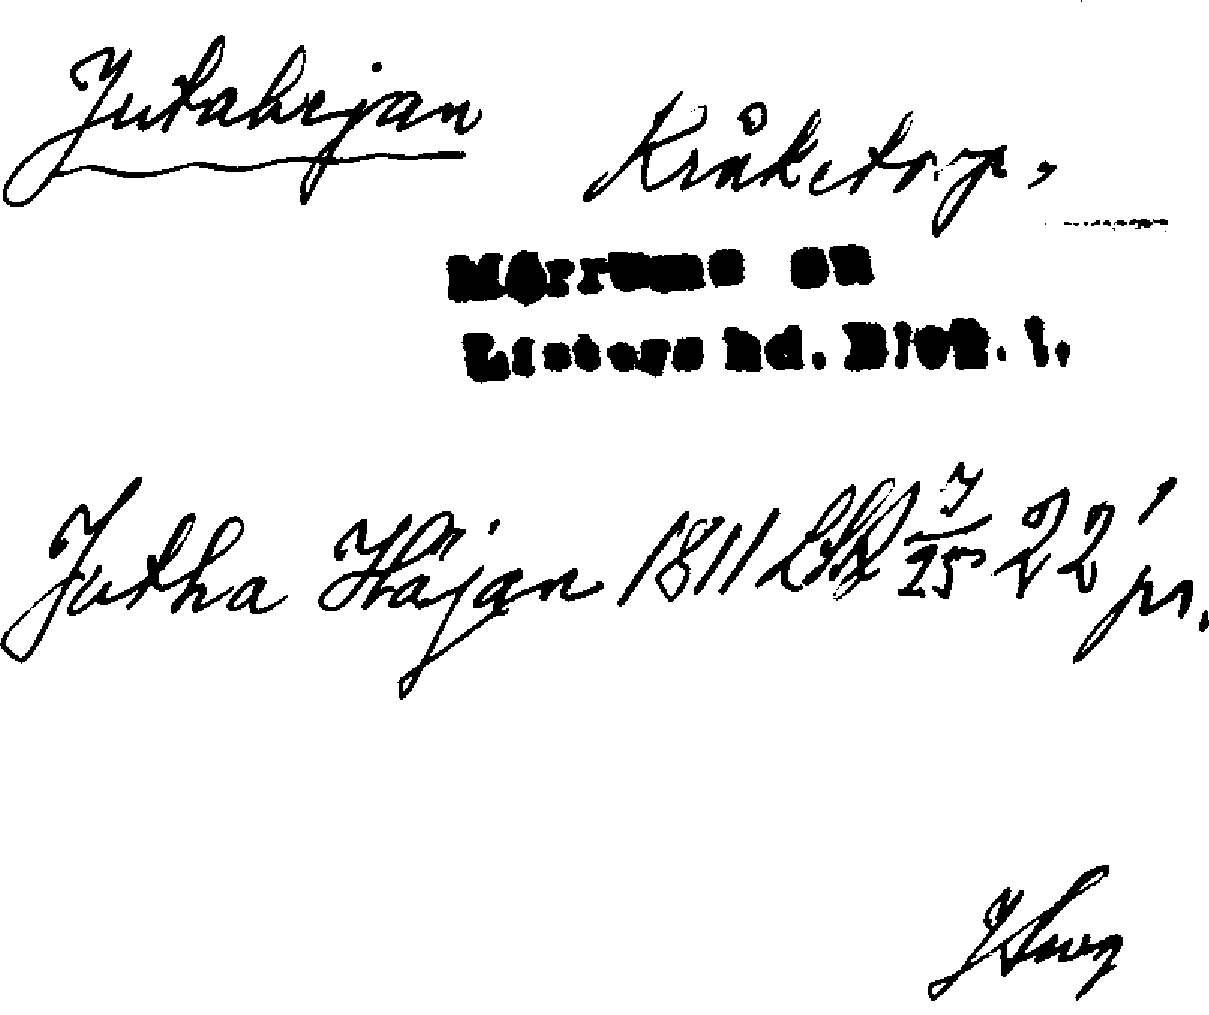 Jutahejan Kråketorp,
Mörrums sn
Listers hd. Blek. l.
Jutha Häjan 1811 LSK 7/25 22' pr.